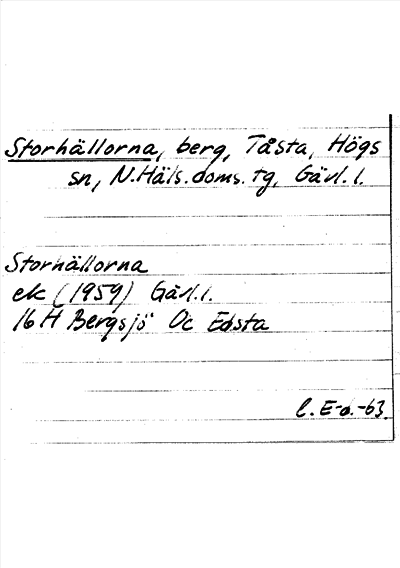 Storhällorna, berg, Tåsta, Högs
sn, N.Häls.doms.tg, Gävl.l.
Storhällorna
ek (1959) Gävl.l.
16 H Bergsjö Oc Edsta
l. E-d.-63.